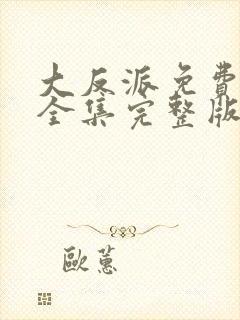 大反派免費
全集完整版
歐蕙